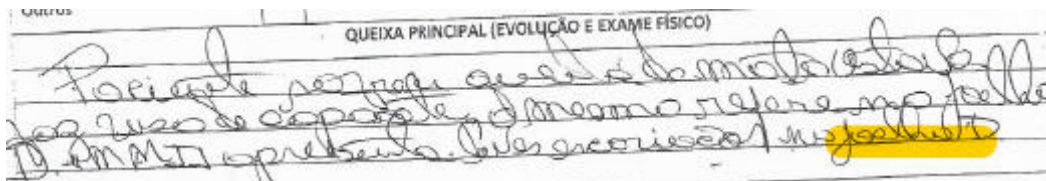 Outros
QUEIXA PRINCIPAL (EVOLUÇÃO E EXAME FÍSICO)
Paciente queda de moto
uso de capacete, o mesmo refere no joelho
D. apresenta leves escoriação no joelho D